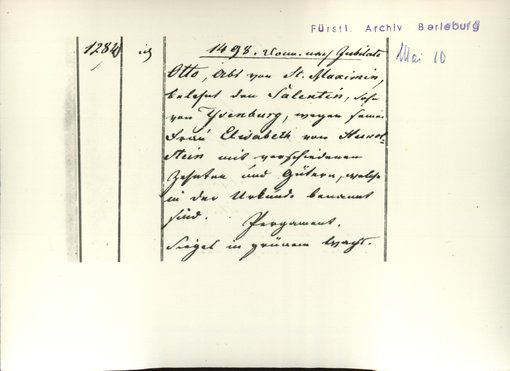 Fürstl. Archiv Berleburg
Mai 10
1284
1498. Donn. nach Jubilate
Otto, Abt von St. Maximin,
belehnt den Salentin, Sohn
von Ysenburg, wegen seiner
Frau Elisabeth von Hunol-
stein mit verschiedenen
Zehnten und Gütern, welche
in der Urkunde benannt
sind. Pergament.
Siegel in grünem Wachs.